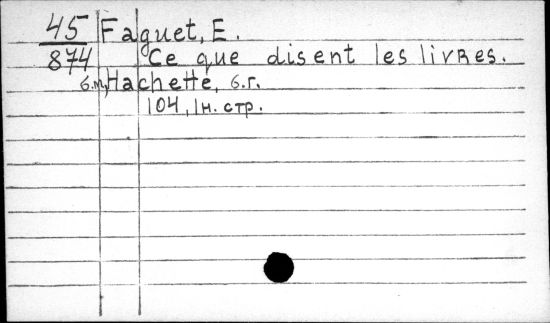 45 Faguet, E.
874 Ce que disent les livres.
б.м, Hachette, б.г.
104, 1н. стр.